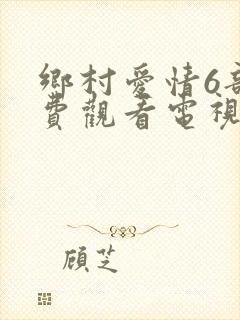 鄉村愛情6部
費觀看電視
顧芝